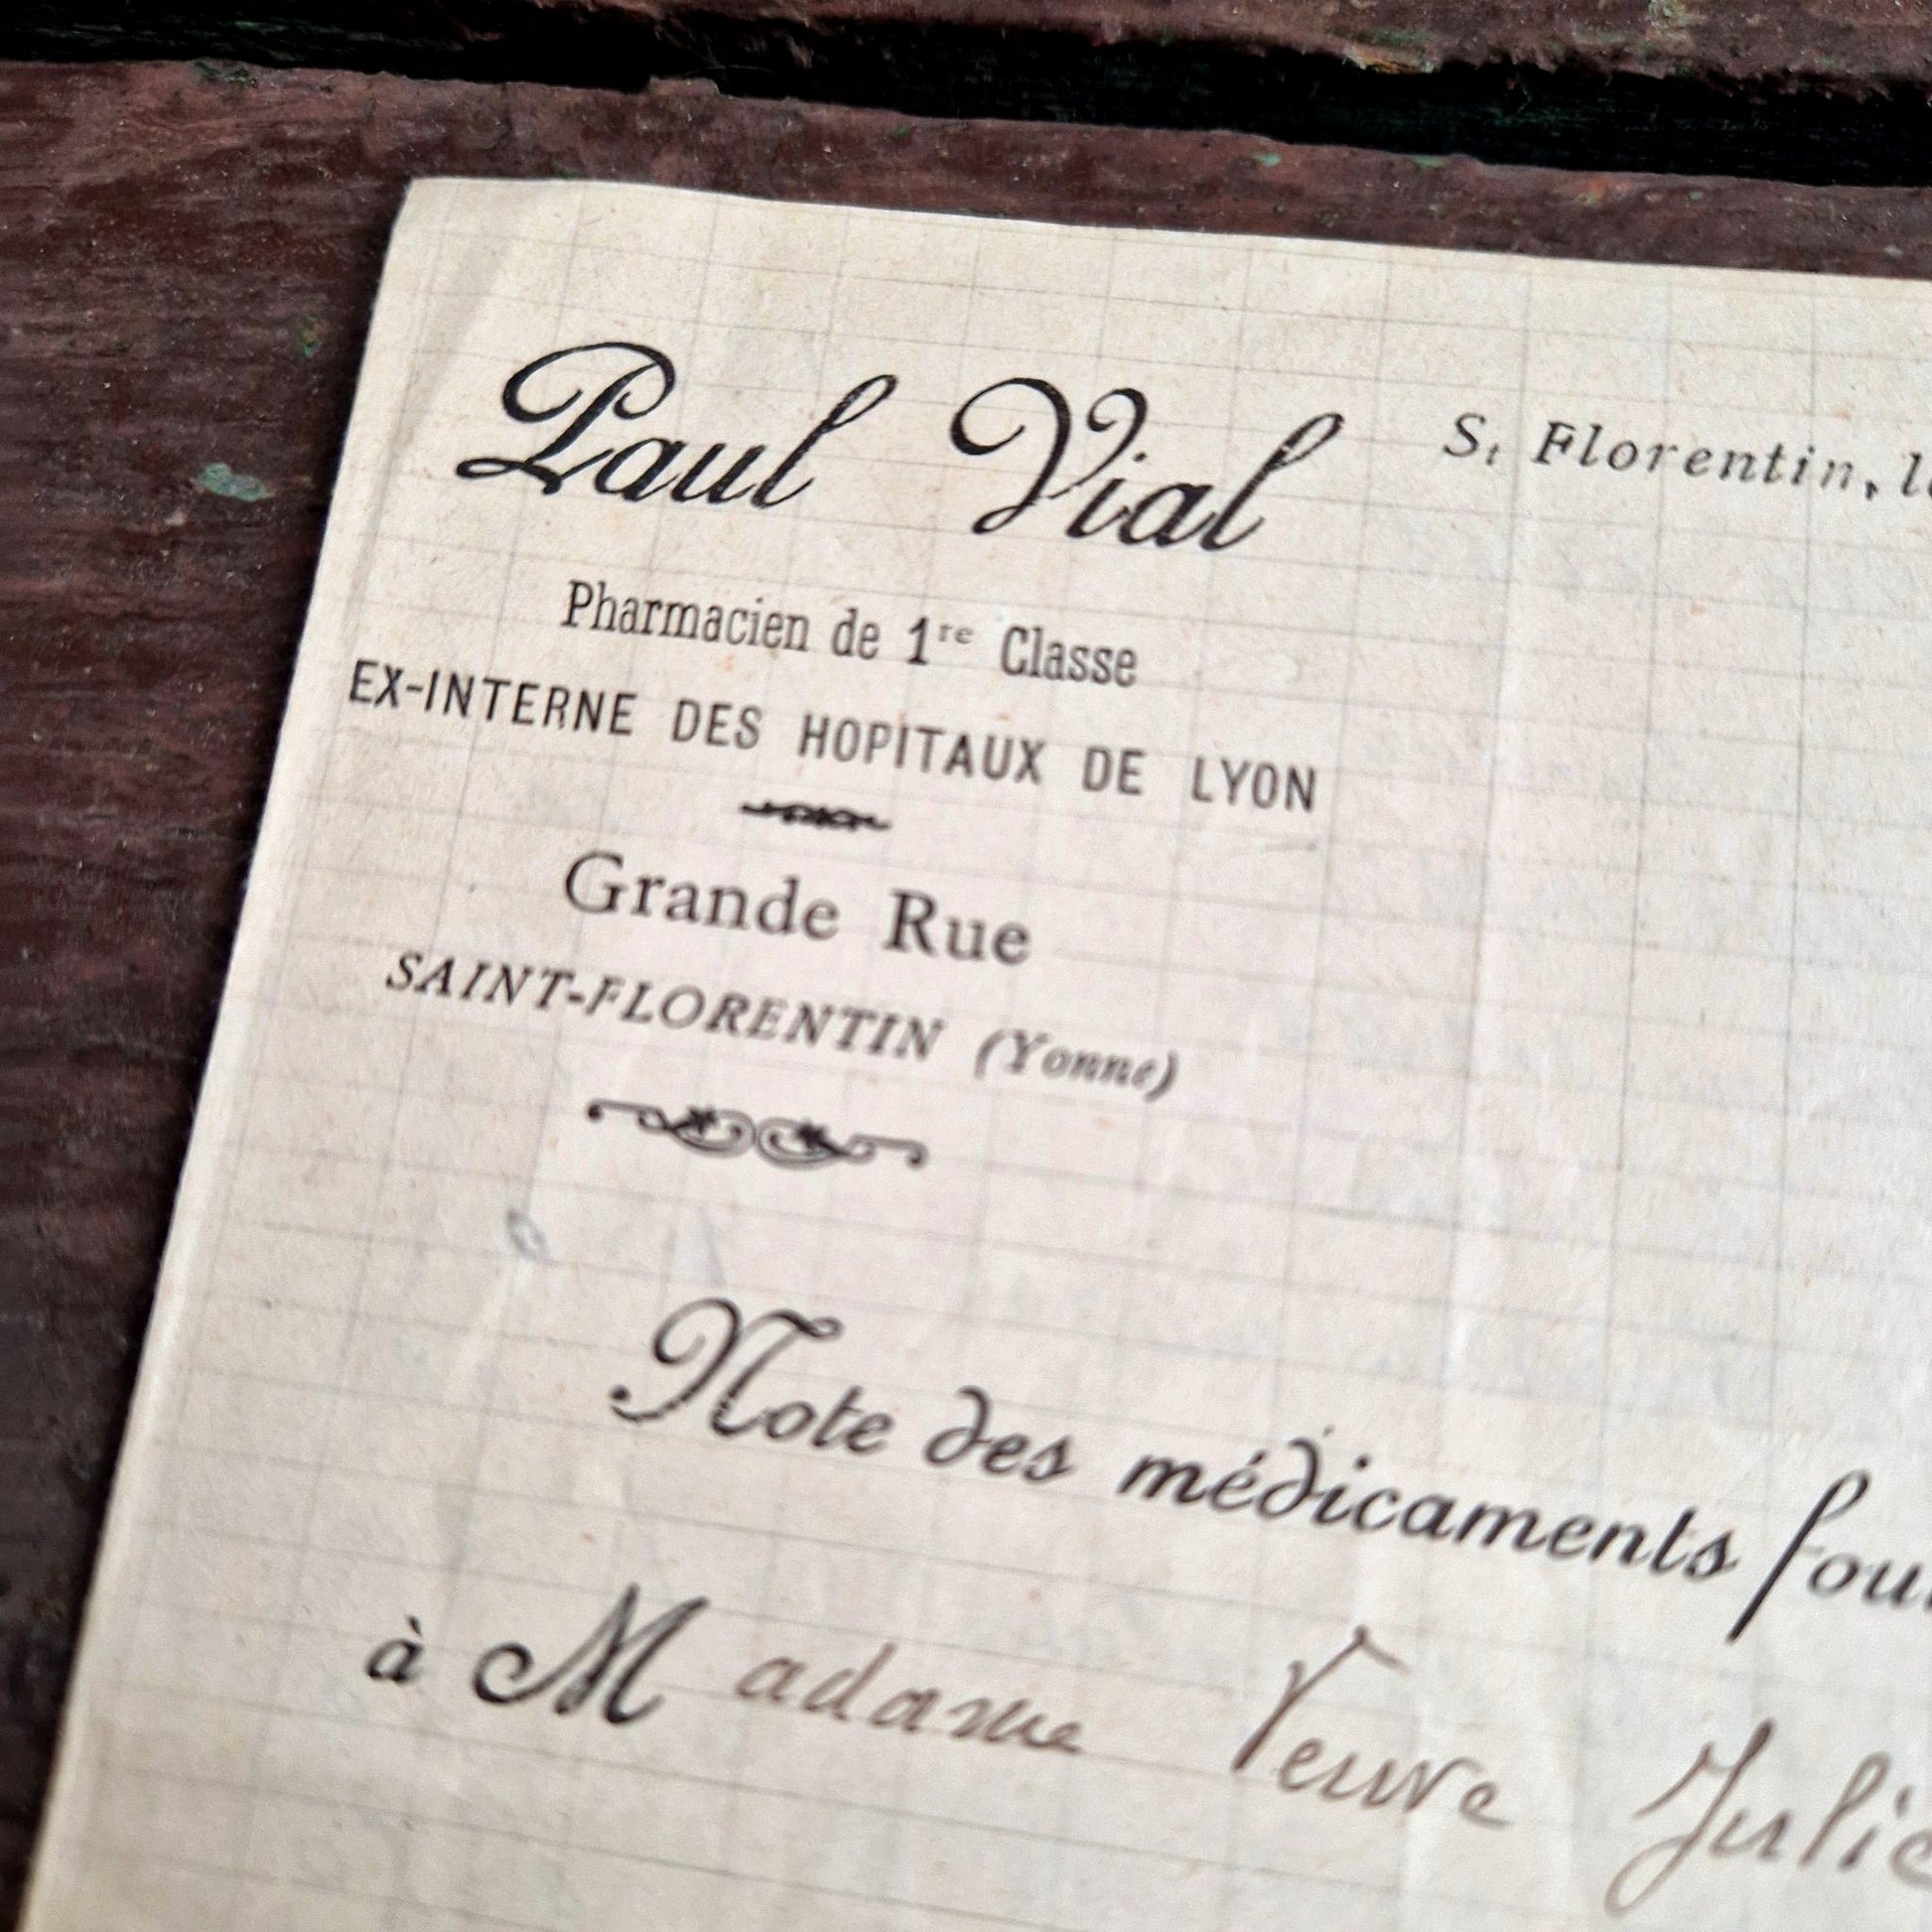 Paul Vial
St Florentin, le
Pharmacien de 1re Classe
EX-INTERNE DES HOPITAUX DE LYON
Grande Rue
SAINT-FLORENTIN (Yonne)
Note des médicaments four
à Madame Veuve Julie